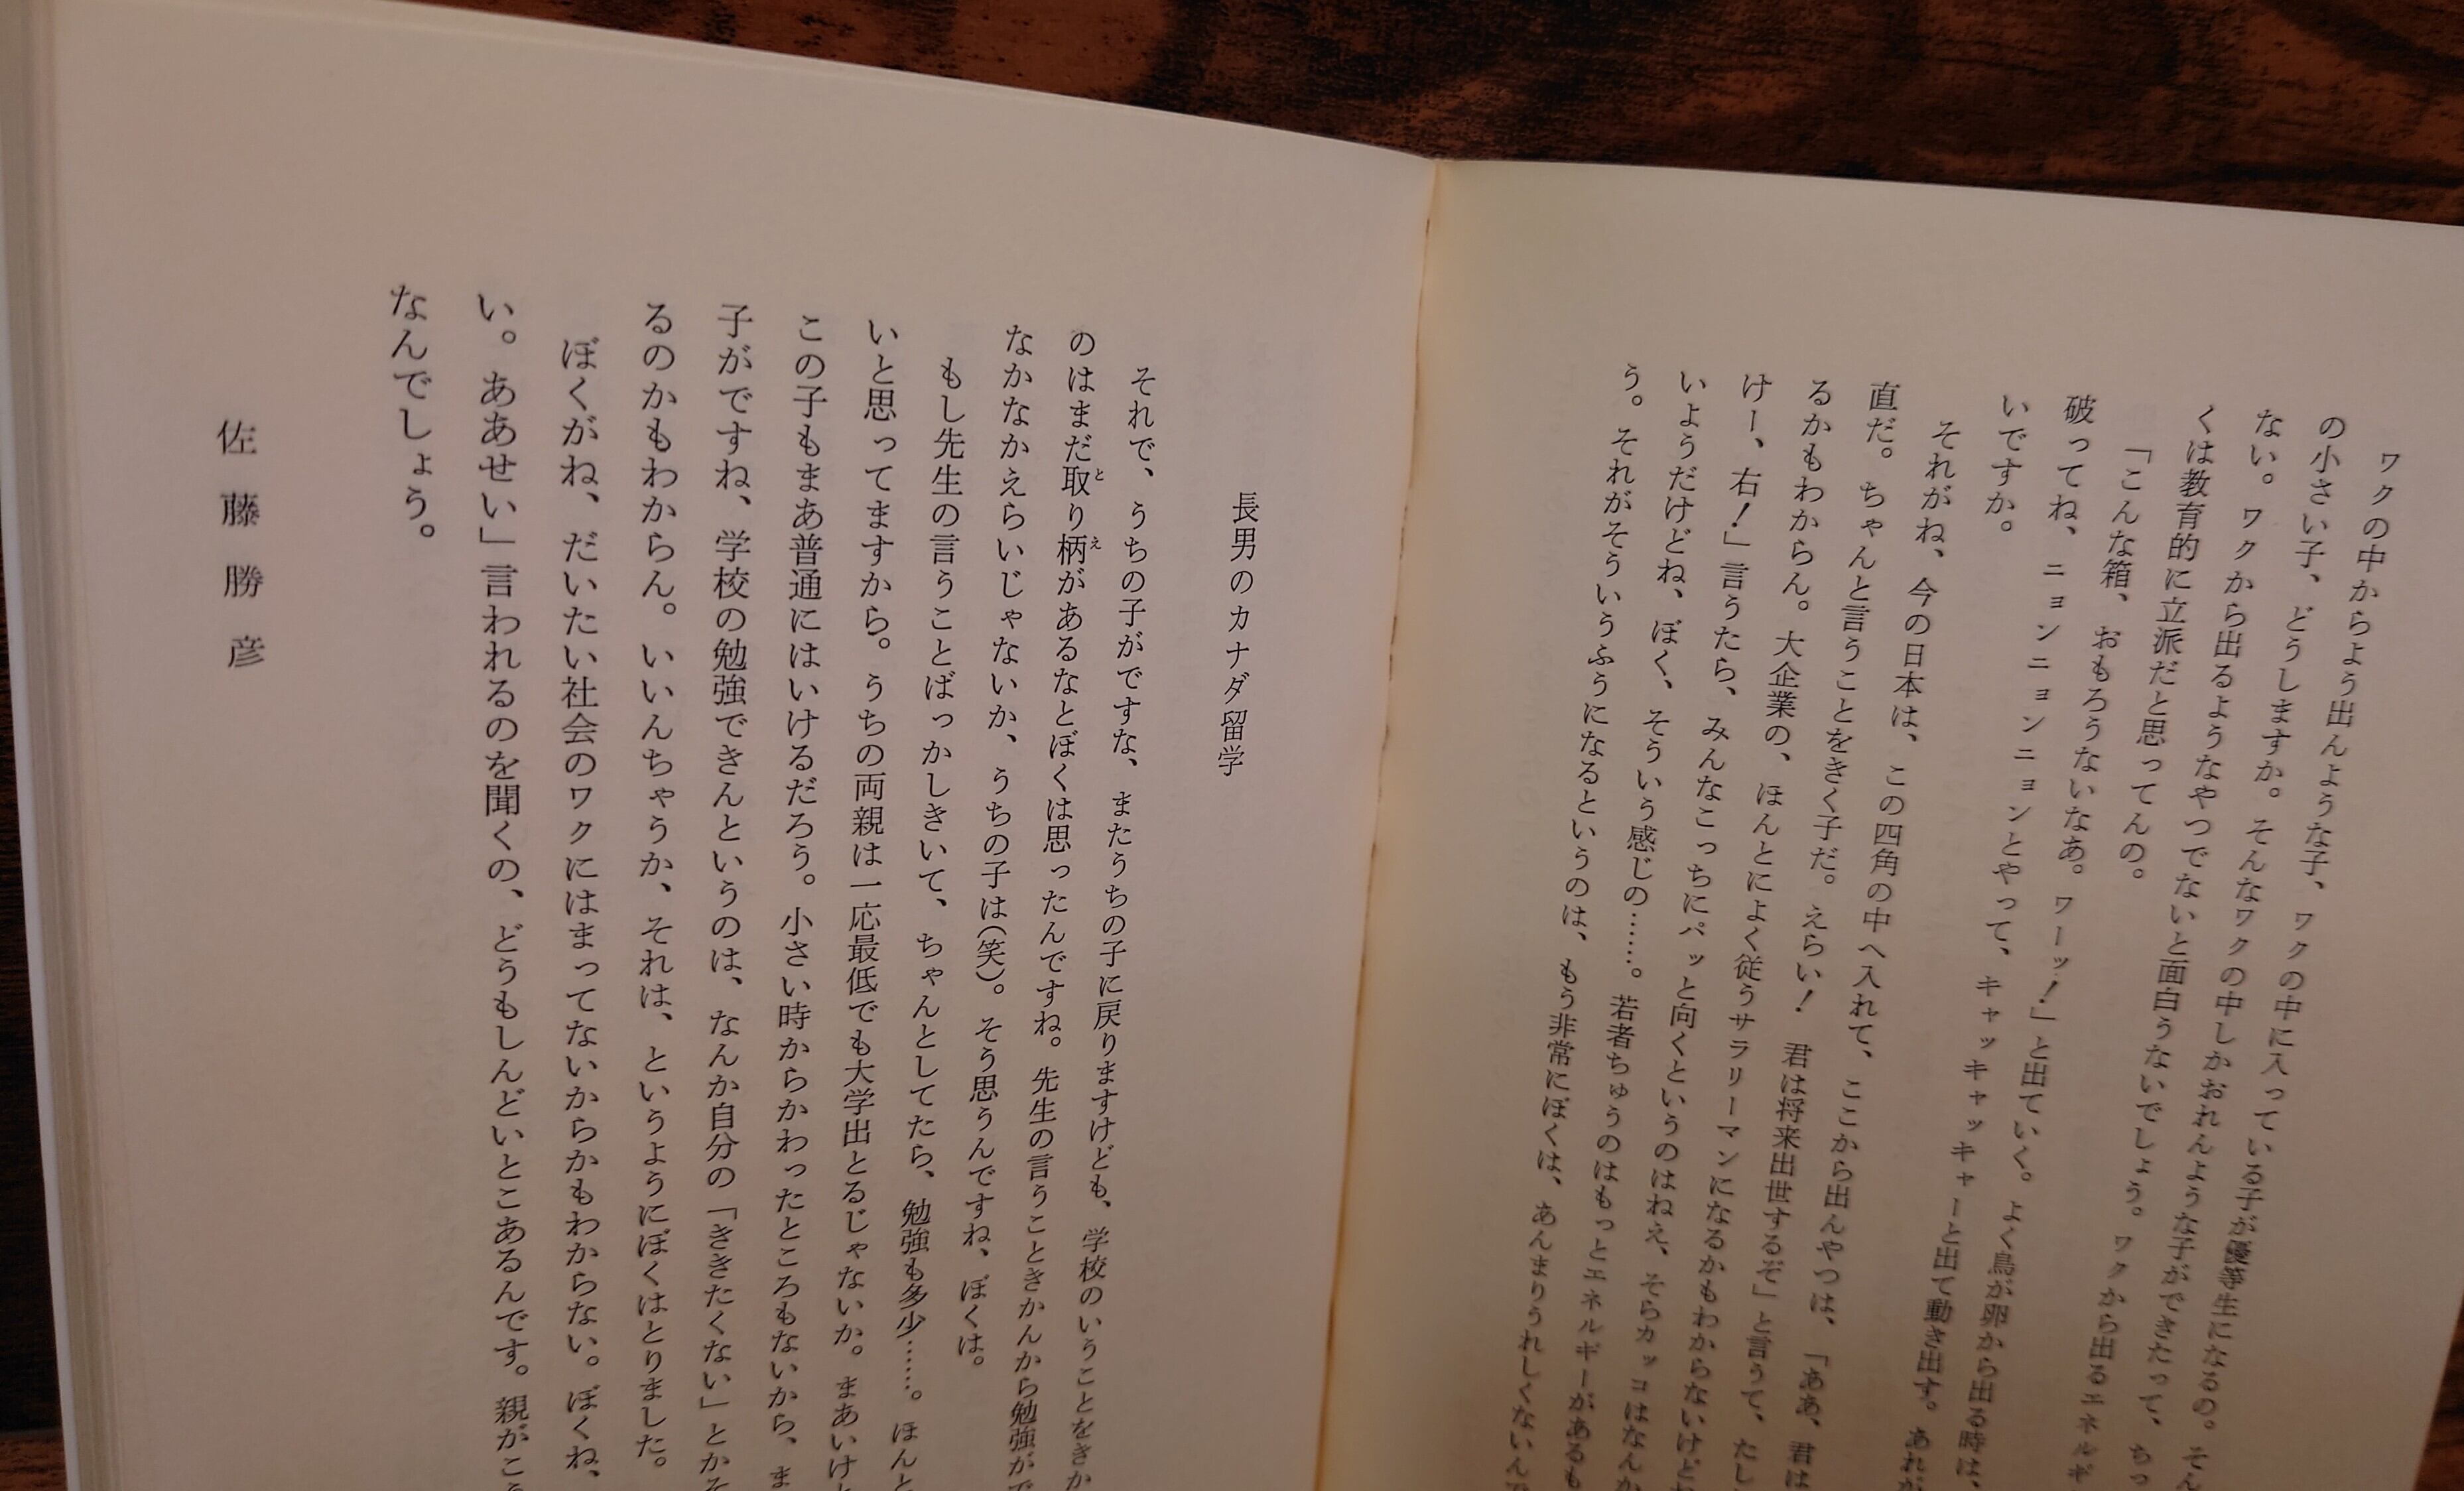 ワクの中からよう出んような子、ワクの中に入っている子が優等生になるの。そん
の小さい子、どうしますか。そんなワクの中しかおれんような子ができたって、ちっ
ない。ワクから出るようなやつでないと面白うないでしょう。ワクから出るエネルギ
くは教育的に立派だと思ってんの。
「こんな箱、おもろうないなあ。ワーッ!」と出ていく。よく鳥が卵から出る時は、
破ってね、ニョンニョンニョンとやって、キャッキャッキャーと出て動き出す。あれが
いですか。
それがね、今の日本は、この四角の中へ入れて、ここから出んやつは、「ああ、君は
直だ。ちゃんと言うことをきく子だ。えらい!君は将来出世するぞ」と言うて、たし
るかもわからん。大企業の、ほんとによく従うサラリーマンになるかもわからないけど
けー、右!」言うたら、みんなこっちにパッと向くというのはねえ、そらカッコはなんか
いようだけどね、ぼく、そういう感じの……。若者ちゅうのはもっとエネルギーがあるも
う。それがそういうふうになるというのは、もう非常にぼくは、あんまりうれしくないんで
長男のカナダ留学
それで、うちの子がですな、またうちの子に戻りますけども、学校のいうことをきか
のはまだ取り柄があるなとぼくは思ったんですね。先生の言うこときかんから勉強がで
なかなかえらいじゃないか、うちの子は(笑)。そう思うんですね、ぼくは。
もし先生の言うことばっかしきいて、ちゃんとしてたら、勉強も多少……。ほんと
いと思ってますから。うちの両親は一応最低でも大学出とるじゃないか。まあいけ
この子もまあ普通にはいけるだろう。小さい時からかわったところもないから、ま
子がですね、学校の勉強できんというのは、なんか自分の「ききたくない」とかそ
るのかもわからん。いいんちゃうか、それは、というようにぼくはとりました。
ぼくがね、だいたい社会のワクにはまってないからかもわからない。ぼくね、
い。ああせい」言われるのを聞くの、どうもしんどいとこあるんです。親がこう
なんでしょう。
佐藤勝彦